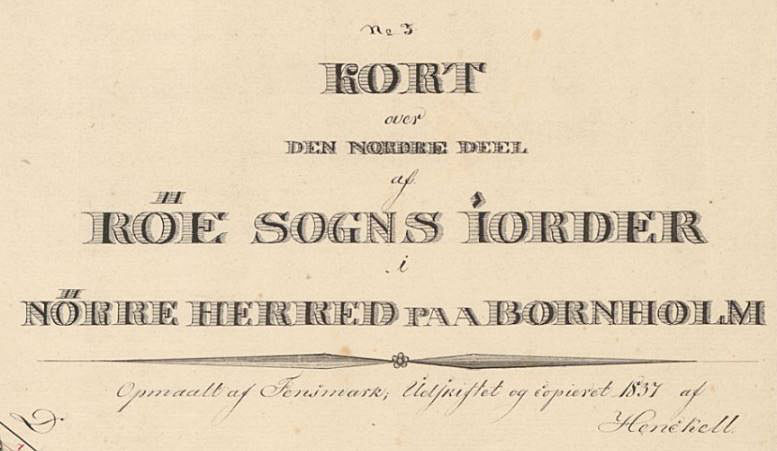 No 3.
KORT
over
DEN NORDRE DEEL
af
RÖE SOGNS IORDER
i
NÖRRE HERRED PAA BORNHOLM
Opmaalt af Fensmark; Udskiftet og copieret 1837 af
Henckell.